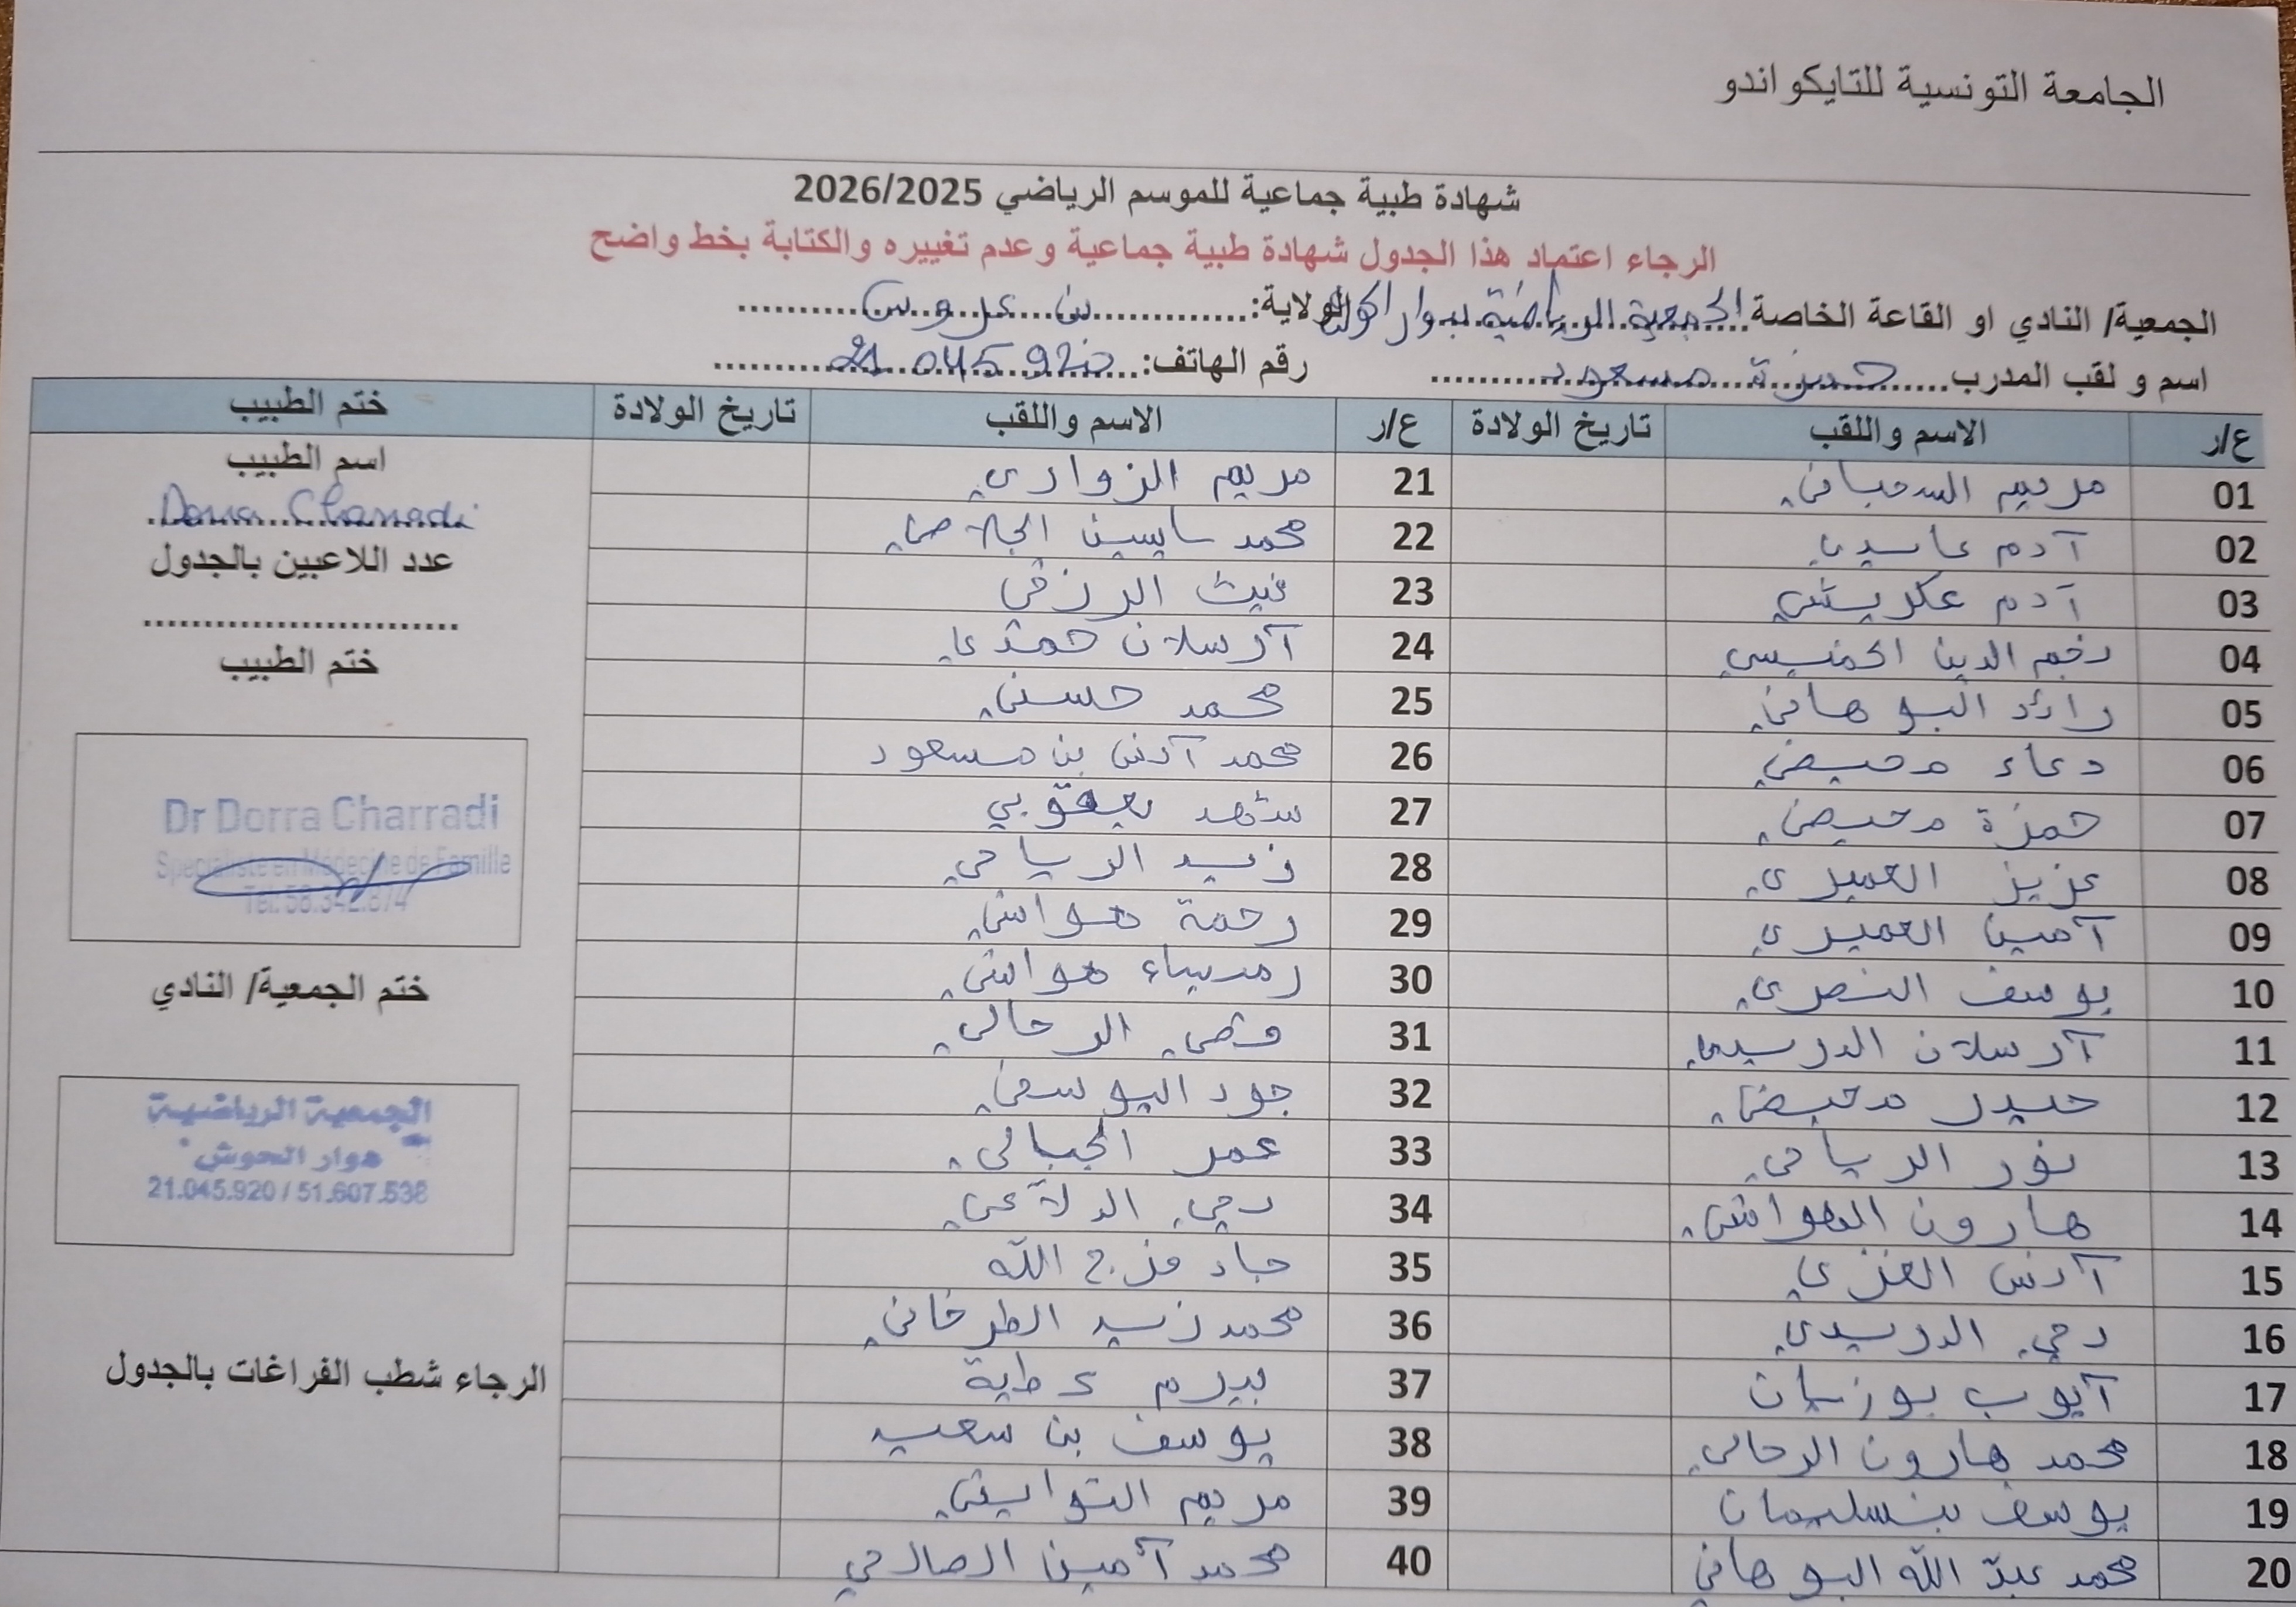 الجامعة التونسية للتايكواندو
شهادة طبية جماعية للموسم الرياضي 2026/2025
الرجاء اعتماد هذا الجدول شهادة طبية جماعية وعدم تغييره والكتابة بخط واضح
الجمعية/ النادي او القاعة الخاصة الجمعية الرياضية الولاية: بن عروس
اسم و لقب المدرب حمزة مسعود رقم الهاتف: 21 045 920
ع/ر الاسم واللقب تاريخ الولادة ع/ر الاسم واللقب تاريخ الولادة ختم الطبيب
01 مريم السحباني
02 آدم عابدي
03 آدم عكريشي
04 نجم الدين الخميسي
05 رائد البوهاني
06 دعاء محيضي
07 حمزة محيضي
08 عزيز العميري
09 آمين العميري
10 يوسف النصري
11 آرسلان الدريدي
12 حيدر محيضي
13 نور الرياحي
14 هارون الهواشي
15 آنس الغزي
16 يحي الدريدي
17 آيوب بوزيان
18 محمد هارون الرحالي
19 يوسف بنسليمان
20 محمد عبد الله البوهاني
21 مريم الزواري
22 محمد ياسين الجلاصي
23 غيث الرزقي
24 آرسلان حمدي
25 محمد حسني
26 محمد آنس بن مسعود
27 شهد يعقوبي
28 زيد الرياحي
29 رحمة هواشي
30 هواشي
31 قصي الرحالي
32 جود اليوسفي
33 عمر الجبالي
34 يحي الدلاعي
35 جاد فرج الله
36 محمد زيد الطرخاني
37 بيرم عطية
38 يوسف بن سعيد
39 مريم التوايتي
40 محمد آمين الصالحي
اسم الطبيب
Dorra Charradi
عدد اللاعبين بالجدول
ختم الطبيب
Dr Dorra Charradi
Spécialiste en Médecine de Famille
Tél: 58.342.874
ختم الجمعية/ النادي
الجمعية الرياضية
بوار الحوش
21.045.920 / 51.607.538
الرجاء شطب الفراغات بالجدول